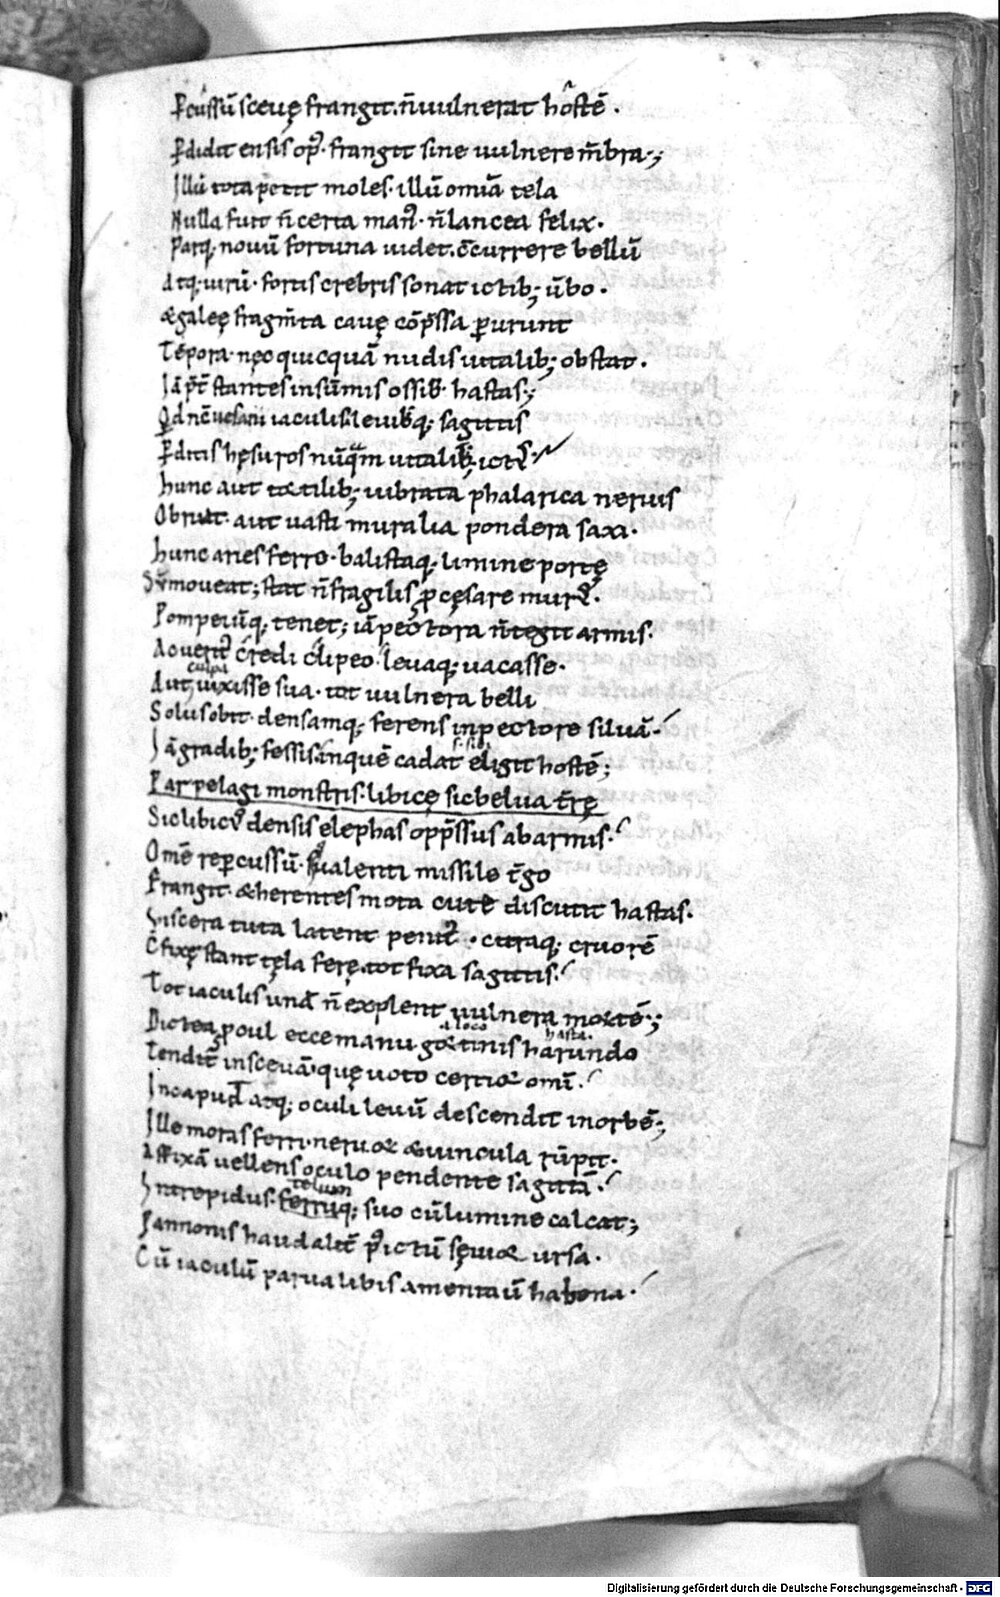 P̲cussū sceuę frangit. n̄ uulnerat hostē.
P̲didit ensis op⁹. frangit sine uulnere m̄bra.;
Illū tota petit moles. illū omīa tela
Nulla fuit n̄ certa man⁹. n̄ lancea felix.
Parq; nouū fortuna uidet. c̄currere bellū
Atq; uirū. fortis crebris sonat ictib; ūbo.
& galeę fragm̄ta cauę cōp̄ssa p̲urunt
Tēpora. nec quicquā nudis uitalib; obstat.
Iā p̄t̄ stantes in sūmis ossib; hastas.;
Qd nc̄ uesani iaculis leuibq; sagittis
P̲ditis hęsuros nūquam uitalib; ict⁹.
Hunc aut tortilib; uibrata phalarica neruis
Obruat. aut uasti muralia pondera saxi.
Hunc aries ferro. balistaq; limine portę
Sūmoueat; stat n̄ fragilis p̲ cęsare mur⁹.
Pompeiūq; tenet; iā pectora n̄ tegit armis.
Ac uerit⁹ credi clipeo. leuaq; uacasse.
culpa
Aut uixisse sua. tot uulnera belli
Solus obit. densamq; ferens in pectore siluā.
Iā gradib; fessis in quē cadat eligit hostē;
Par pelagi monstris. libicę sic belua t̄rę
Sic libic⁹ densis elephas opp̄ssus ab armis.
Omē repercussū. squalenti missile t̄go
Frangit. & herentes mota cute discutit hastas.
Viscera tuta latent penit⁹. citraq; cruorē
C̄fixę stant tęla ferę. tot fixa sagittis.
Tot iaculis unā n̄ explent uulnera mortē.;
Dictea p̲cul ecce manu gortinis harundo
a loco hasta.
Tendit̄ in sceuā. quę uoto certior omī.
In caput atq; oculi leuū descendit in orbē;
Ille moras ferri. neruor & uincula rūpit.
Affixā uellens oculo pendente sagittā.
telum
Intrepidus. ferrūq; suo cū lumine calcat;
Pannonis haud alit̄ p⁹ ictū sęuior ursa.
Cū iaculū parua libis amentauī habena.
Digitalisierung gefördert durch die Deutsche Forschungsgemeinschaft - DFG